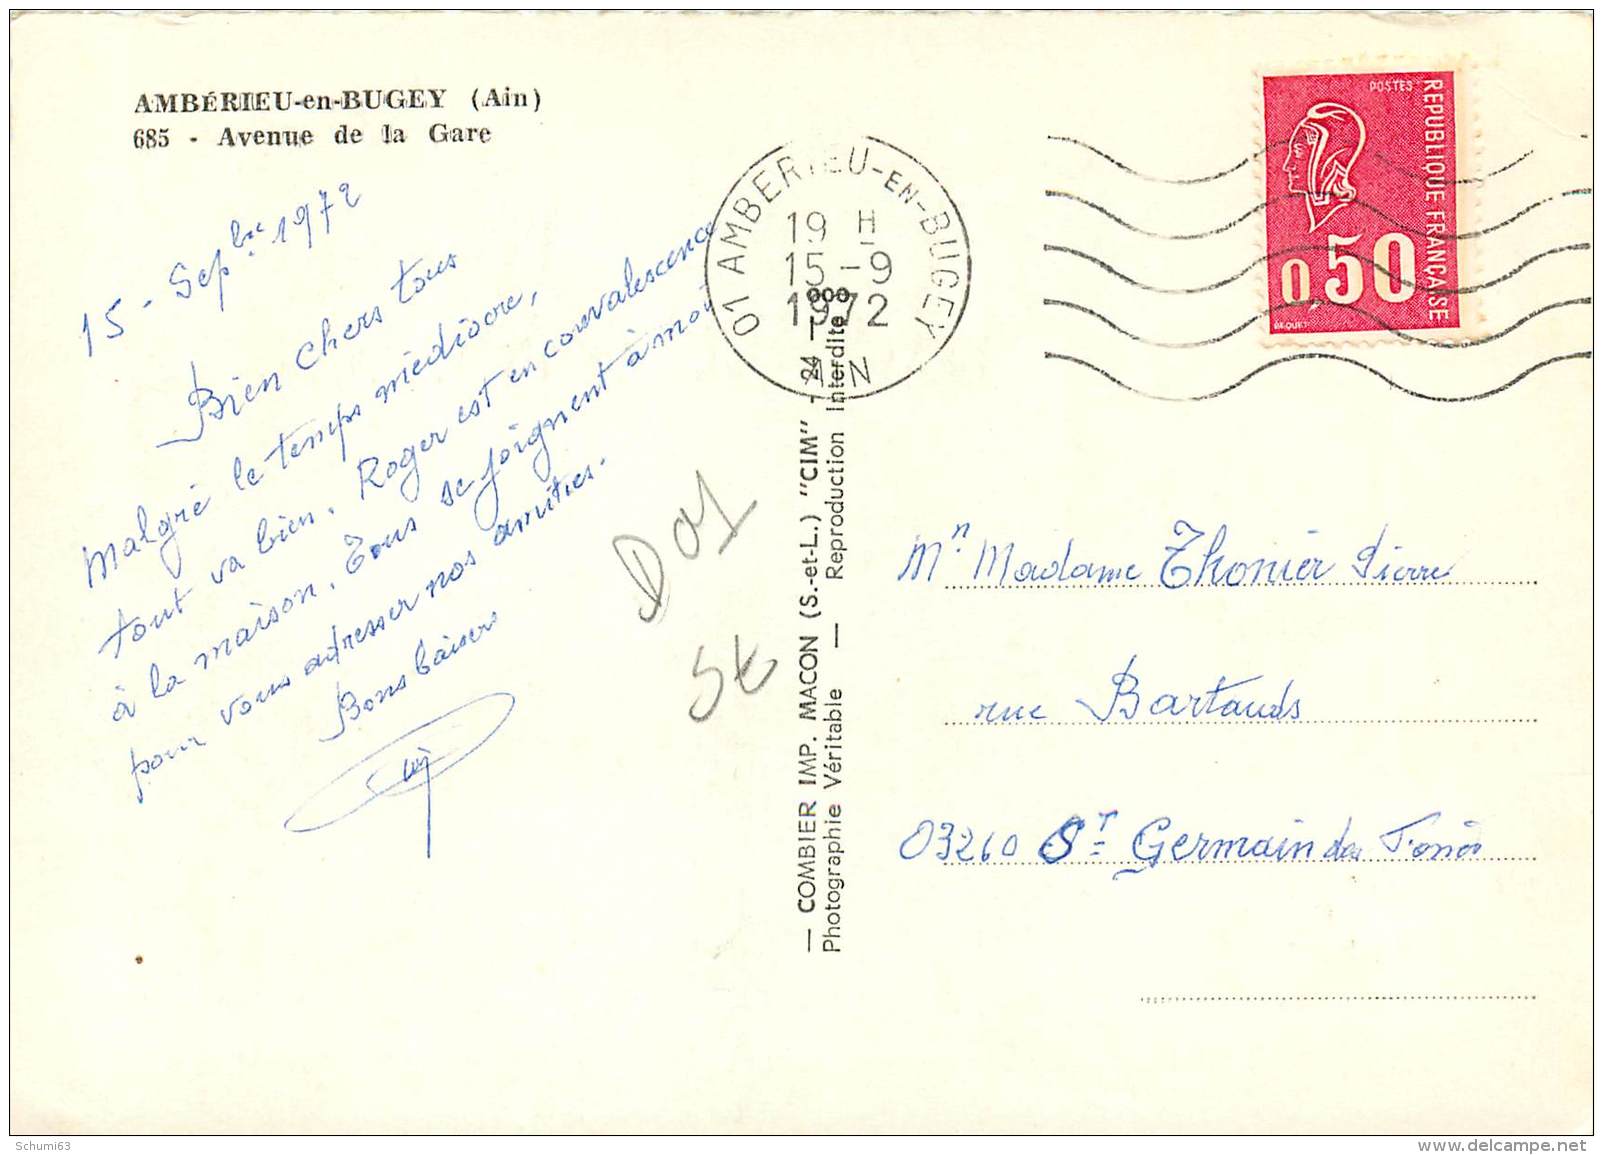 AMBÉRIEU-en-BUGEY (Ain)
685 - Avenue de la Gare
15 - Sepbre 1972
Bien chers tous
Malgré le temps médiocre,
tout va bien. Roger est en convalescence
à la maison. Tous se joignent à moi
pour vous adresser nos amitiés.
Bons baisers
D01
St
— COMBIER IMP. MACON (S.-et-L.) "CIM" T 24 — 000
Photographie Véritable — Reproduction Interdite
01 AMBERIEU-EN-BUGEY
19 H
15-9
1972
AIN
POSTES
REPUBLIQUE FRANÇAISE
0,50
BEQUET
Mr Madame Thonier Pierre
rue Bartauds
03260 St Germain des Fossés
Schumi63
www.delcampe.net